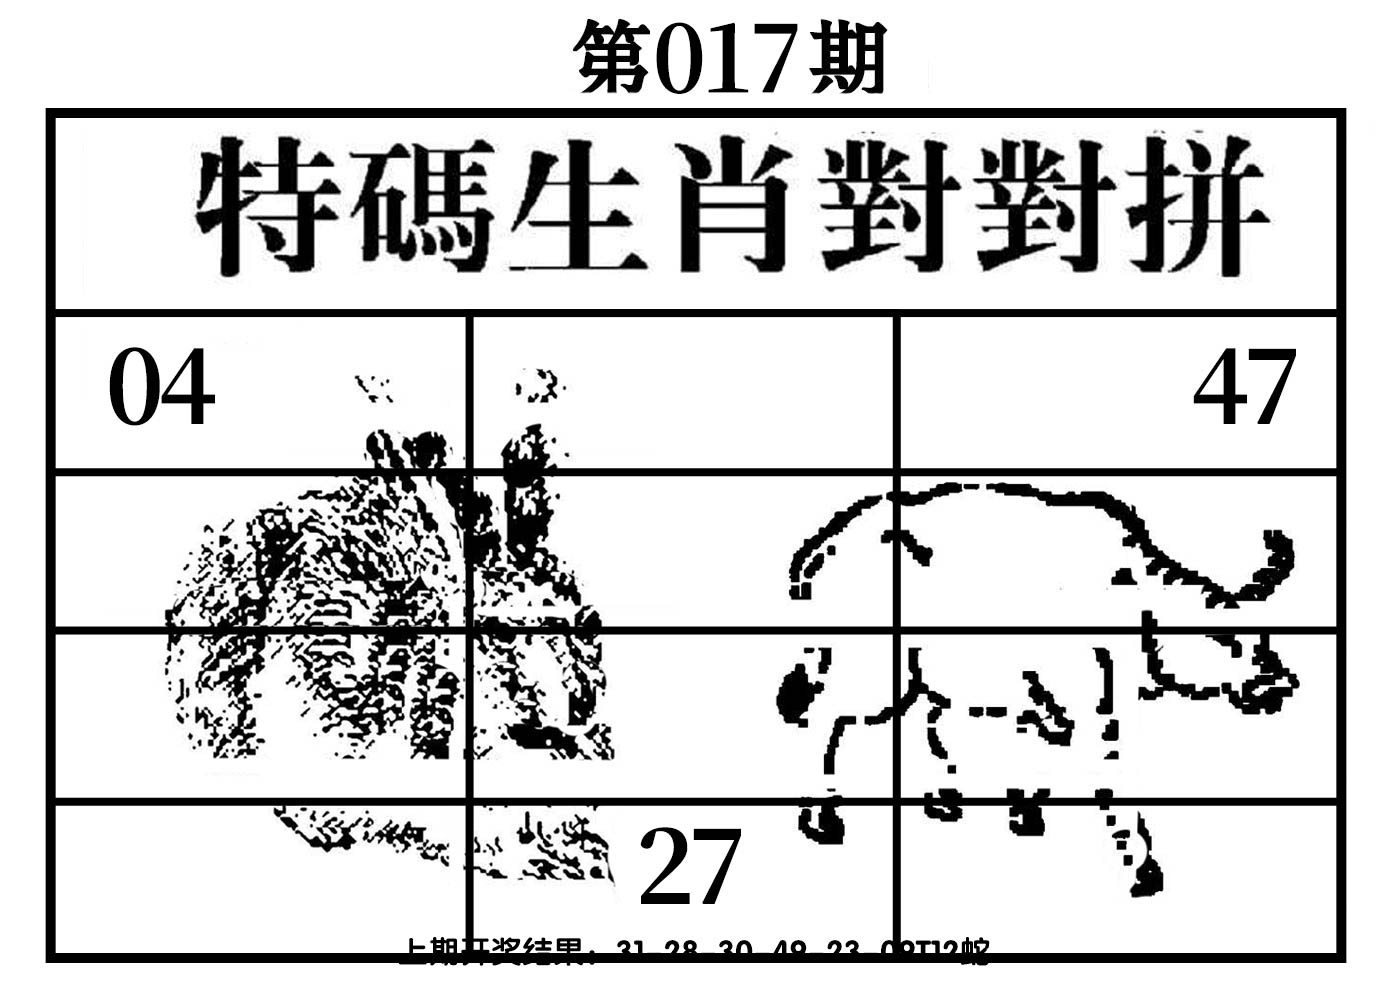 第017期
特碼生肖對對拼
04
47
27
上期开奖结果：31-28-30-49-23-09T12蛇